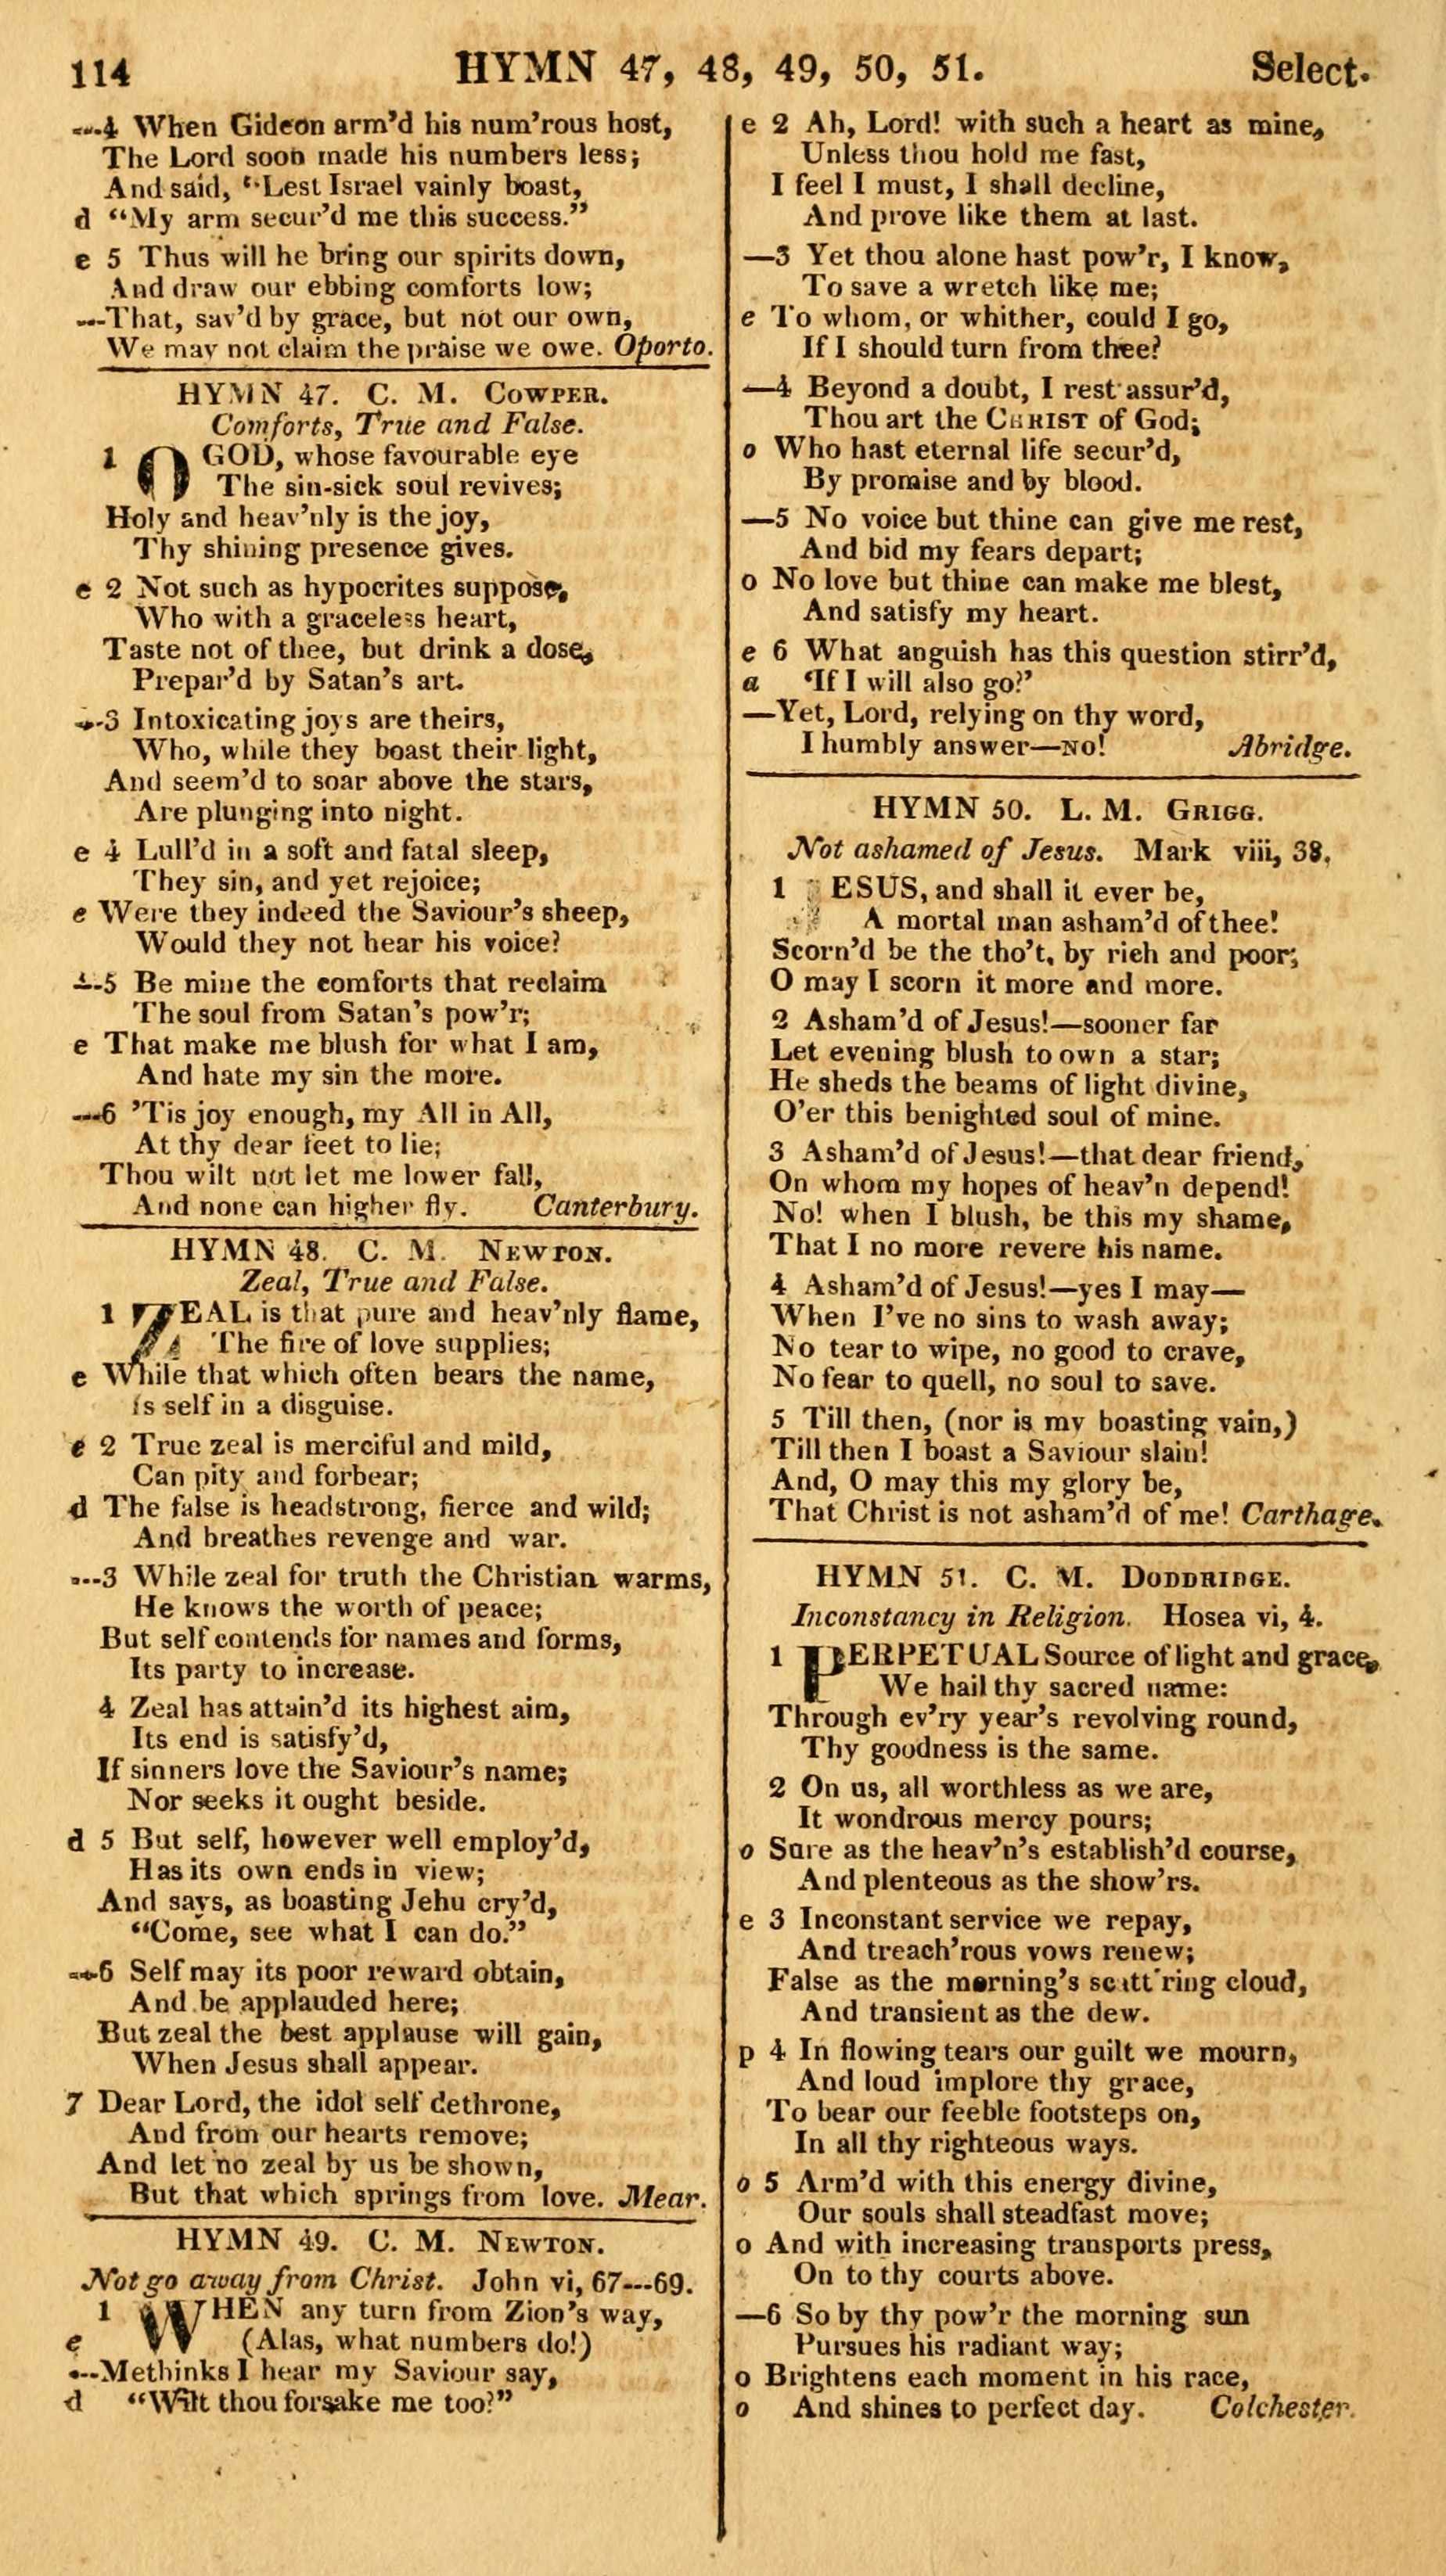 114 HYMN 47, 48, 49, 50, 51. Select.
—4 When Gideon arm'd his num'rous host,
The Lord soon made his numbers less;
And said, "Lest Israel vainly boast,
d "My arm secur'd me this success."
e 5 Thus will he bring our spirits down,
And draw our ebbing comforts low;
—That, sav'd by grace, but not our own,
We may not claim the praise we owe. Oporto.
HYMN 47. C. M. COWPER.
Comforts, True and False.
1 O GOD, whose favourable eye
The sin-sick soul revives;
Holy and heav'nly is the joy,
Thy shining presence gives.
e 2 Not such as hypocrites suppose,
Who with a graceless heart,
Taste not of thee, but drink a dose,
Prepar'd by Satan's art.
—3 Intoxicating joys are theirs,
Who, while they boast their light,
And seem'd to soar above the stars,
Are plunging into night.
e 4 Lull'd in a soft and fatal sleep,
They sin, and yet rejoice;
e Were they indeed the Saviour's sheep,
Would they not hear his voice?
—5 Be mine the comforts that reclaim
The soul from Satan's pow'r;
e That make me blush for what I am,
And hate my sin the more.
—6 'Tis joy enough, my All in All,
At thy dear feet to lie;
Thou wilt not let me lower fall,
And none can higher fly. Canterbury.
HYMN 48. C. M. NEWTON.
Zeal, True and False.
1 ZEAL is that pure and heav'nly flame,
The fire of love supplies;
e While that which often bears the name,
Is self in a disguise.
e 2 True zeal is merciful and mild,
Can pity and forbear;
d The false is headstrong, fierce and wild;
And breathes revenge and war.
—3 While zeal for truth the Christian warms,
He knows the worth of peace;
But self contends for names and forms,
Its party to increase.
4 Zeal has attain'd its highest aim,
Its end is satisfy'd,
If sinners love the Saviour's name;
Nor seeks it ought beside.
d 5 But self, however well employ'd,
Has its own ends in view;
And says, as boasting Jehu cry'd,
"Come, see what I can do."
—6 Self may its poor reward obtain,
And be applauded here;
But zeal the best applause will gain,
When Jesus shall appear.
7 Dear Lord, the idol self dethrone,
And from our hearts remove;
And let no zeal by us be shown,
But that which springs from love. Mear.
HYMN 49. C. M. NEWTON.
Not go away from Christ. John vi, 67---69.
1 WHEN any turn from Zion's way,
e (Alas, what numbers do!)
—Methinks I hear my Saviour say,
d "Wilt thou forsake me too?"
e 2 Ah, Lord! with such a heart as mine,
Unless thou hold me fast,
I feel I must, I shall decline,
And prove like them at last.
—3 Yet thou alone hast pow'r, I know,
To save a wretch like me;
e To whom, or whither, could I go,
If I should turn from thee?
—4 Beyond a doubt, I rest assur'd,
Thou art the CHRIST of God;
o Who hast eternal life secur'd,
By promise and by blood.
—5 No voice but thine can give me rest,
And bid my fears depart;
o No love but thine can make me blest,
And satisfy my heart.
e 6 What anguish has this question stirr'd,
a 'If I will also go?'
—Yet, Lord, relying on thy word,
I humbly answer—NO! Abridge.
HYMN 50. L. M. GRIGG.
Not ashamed of Jesus. Mark viii, 38.
1 JESUS, and shall it ever be,
A mortal man asham'd of thee!
Scorn'd be the tho't, by rich and poor;
O may I scorn it more and more.
2 Asham'd of Jesus!—sooner far
Let evening blush to own a star;
He sheds the beams of light divine,
O'er this benighted soul of mine.
3 Asham'd of Jesus!—that dear friend,
On whom my hopes of heav'n depend!
No! when I blush, be this my shame,
That I no more revere his name.
4 Asham'd of Jesus!—yes I may—
When I've no sins to wash away;
No tear to wipe, no good to crave,
No fear to quell, no soul to save.
5 Till then, (nor is my boasting vain,)
Till then I boast a Saviour slain!
And, O may this my glory be,
That Christ is not asham'd of me! Carthage.
HYMN 51. C. M. DODDRIDGE.
Inconstancy in Religion. Hosea vi, 4.
1 PERPETUAL Source of light and grace,
We hail thy sacred name:
Through ev'ry year's revolving round,
Thy goodness is the same.
2 On us, all worthless as we are,
It wondrous mercy pours;
o Sure as the heav'n's establish'd course,
And plenteous as the show'rs.
e 3 Inconstant service we repay,
And treach'rous vows renew;
False as the morning's scatt'ring cloud,
And transient as the dew.
p 4 In flowing tears our guilt we mourn,
And loud implore thy grace,
To bear our feeble footsteps on,
In all thy righteous ways.
o 5 Arm'd with this energy divine,
Our souls shall steadfast move;
o And with increasing transports press,
On to thy courts above.
—6 So by thy pow'r the morning sun
Pursues his radiant way;
o Brightens each moment in his race,
o And shines to perfect day. Colchester.